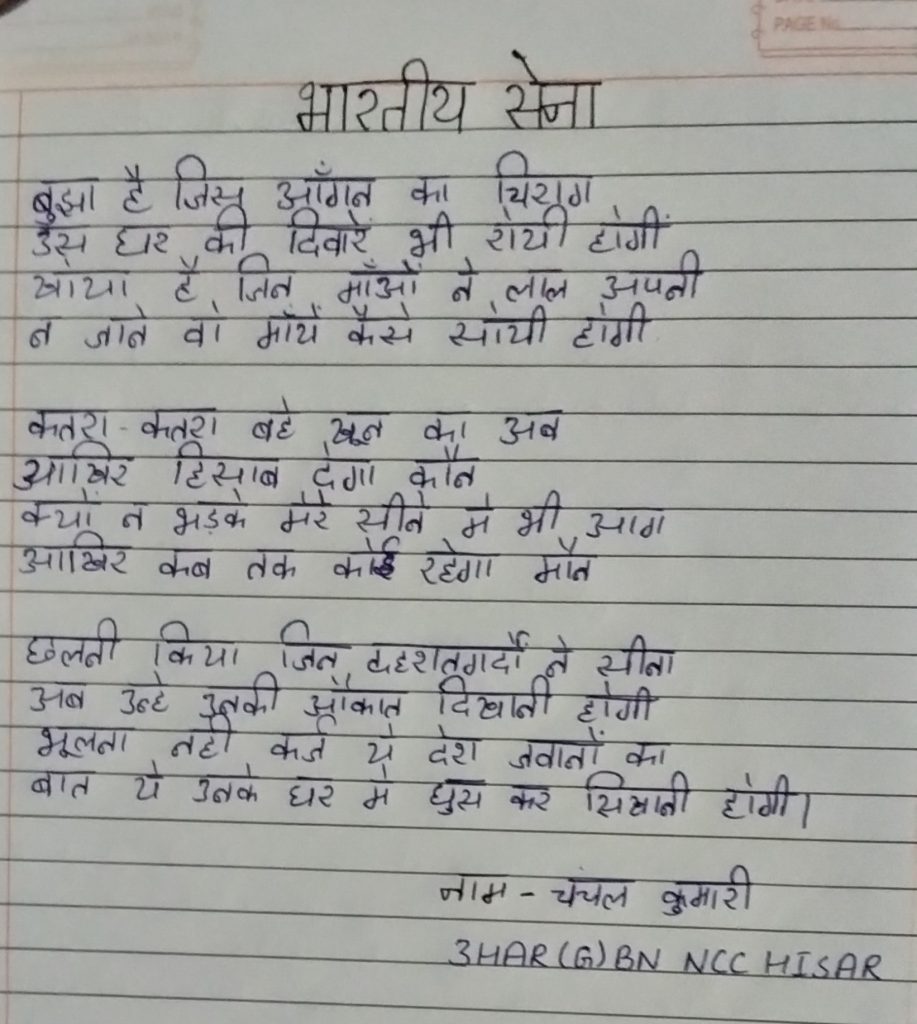 PAGE No.
भारतीय सेना
बुझा है जिस आँगन का चिराग
उस घर की दिवारें भी रोयी होगीं
खोया है जिन माँओं ने लाल अपनी
न जाने वो माँयें कैसे सोयी होगी
कतरा-कतरा बहे खून का अब
आखिर हिसाब देगा कौन
क्यों न भड़के मेरे सीने मे भी आग
आखिर कब तक कोई रहेगा मौन
छलनी किया जिन दहशतगर्दों ने सीना
अब उन्हे उनकी औकात दिखानी होगी
भूलता नही कर्ज ये देश जवानों का
बात ये उनके घर मे घुस कर सिखानी होगी।
नाम - चंचल कुमारी
3HAR(G)BN NCC HISAR